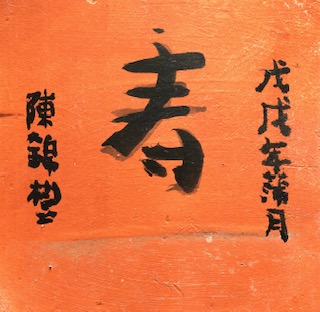 戊戌年蒲月
春
陳錦